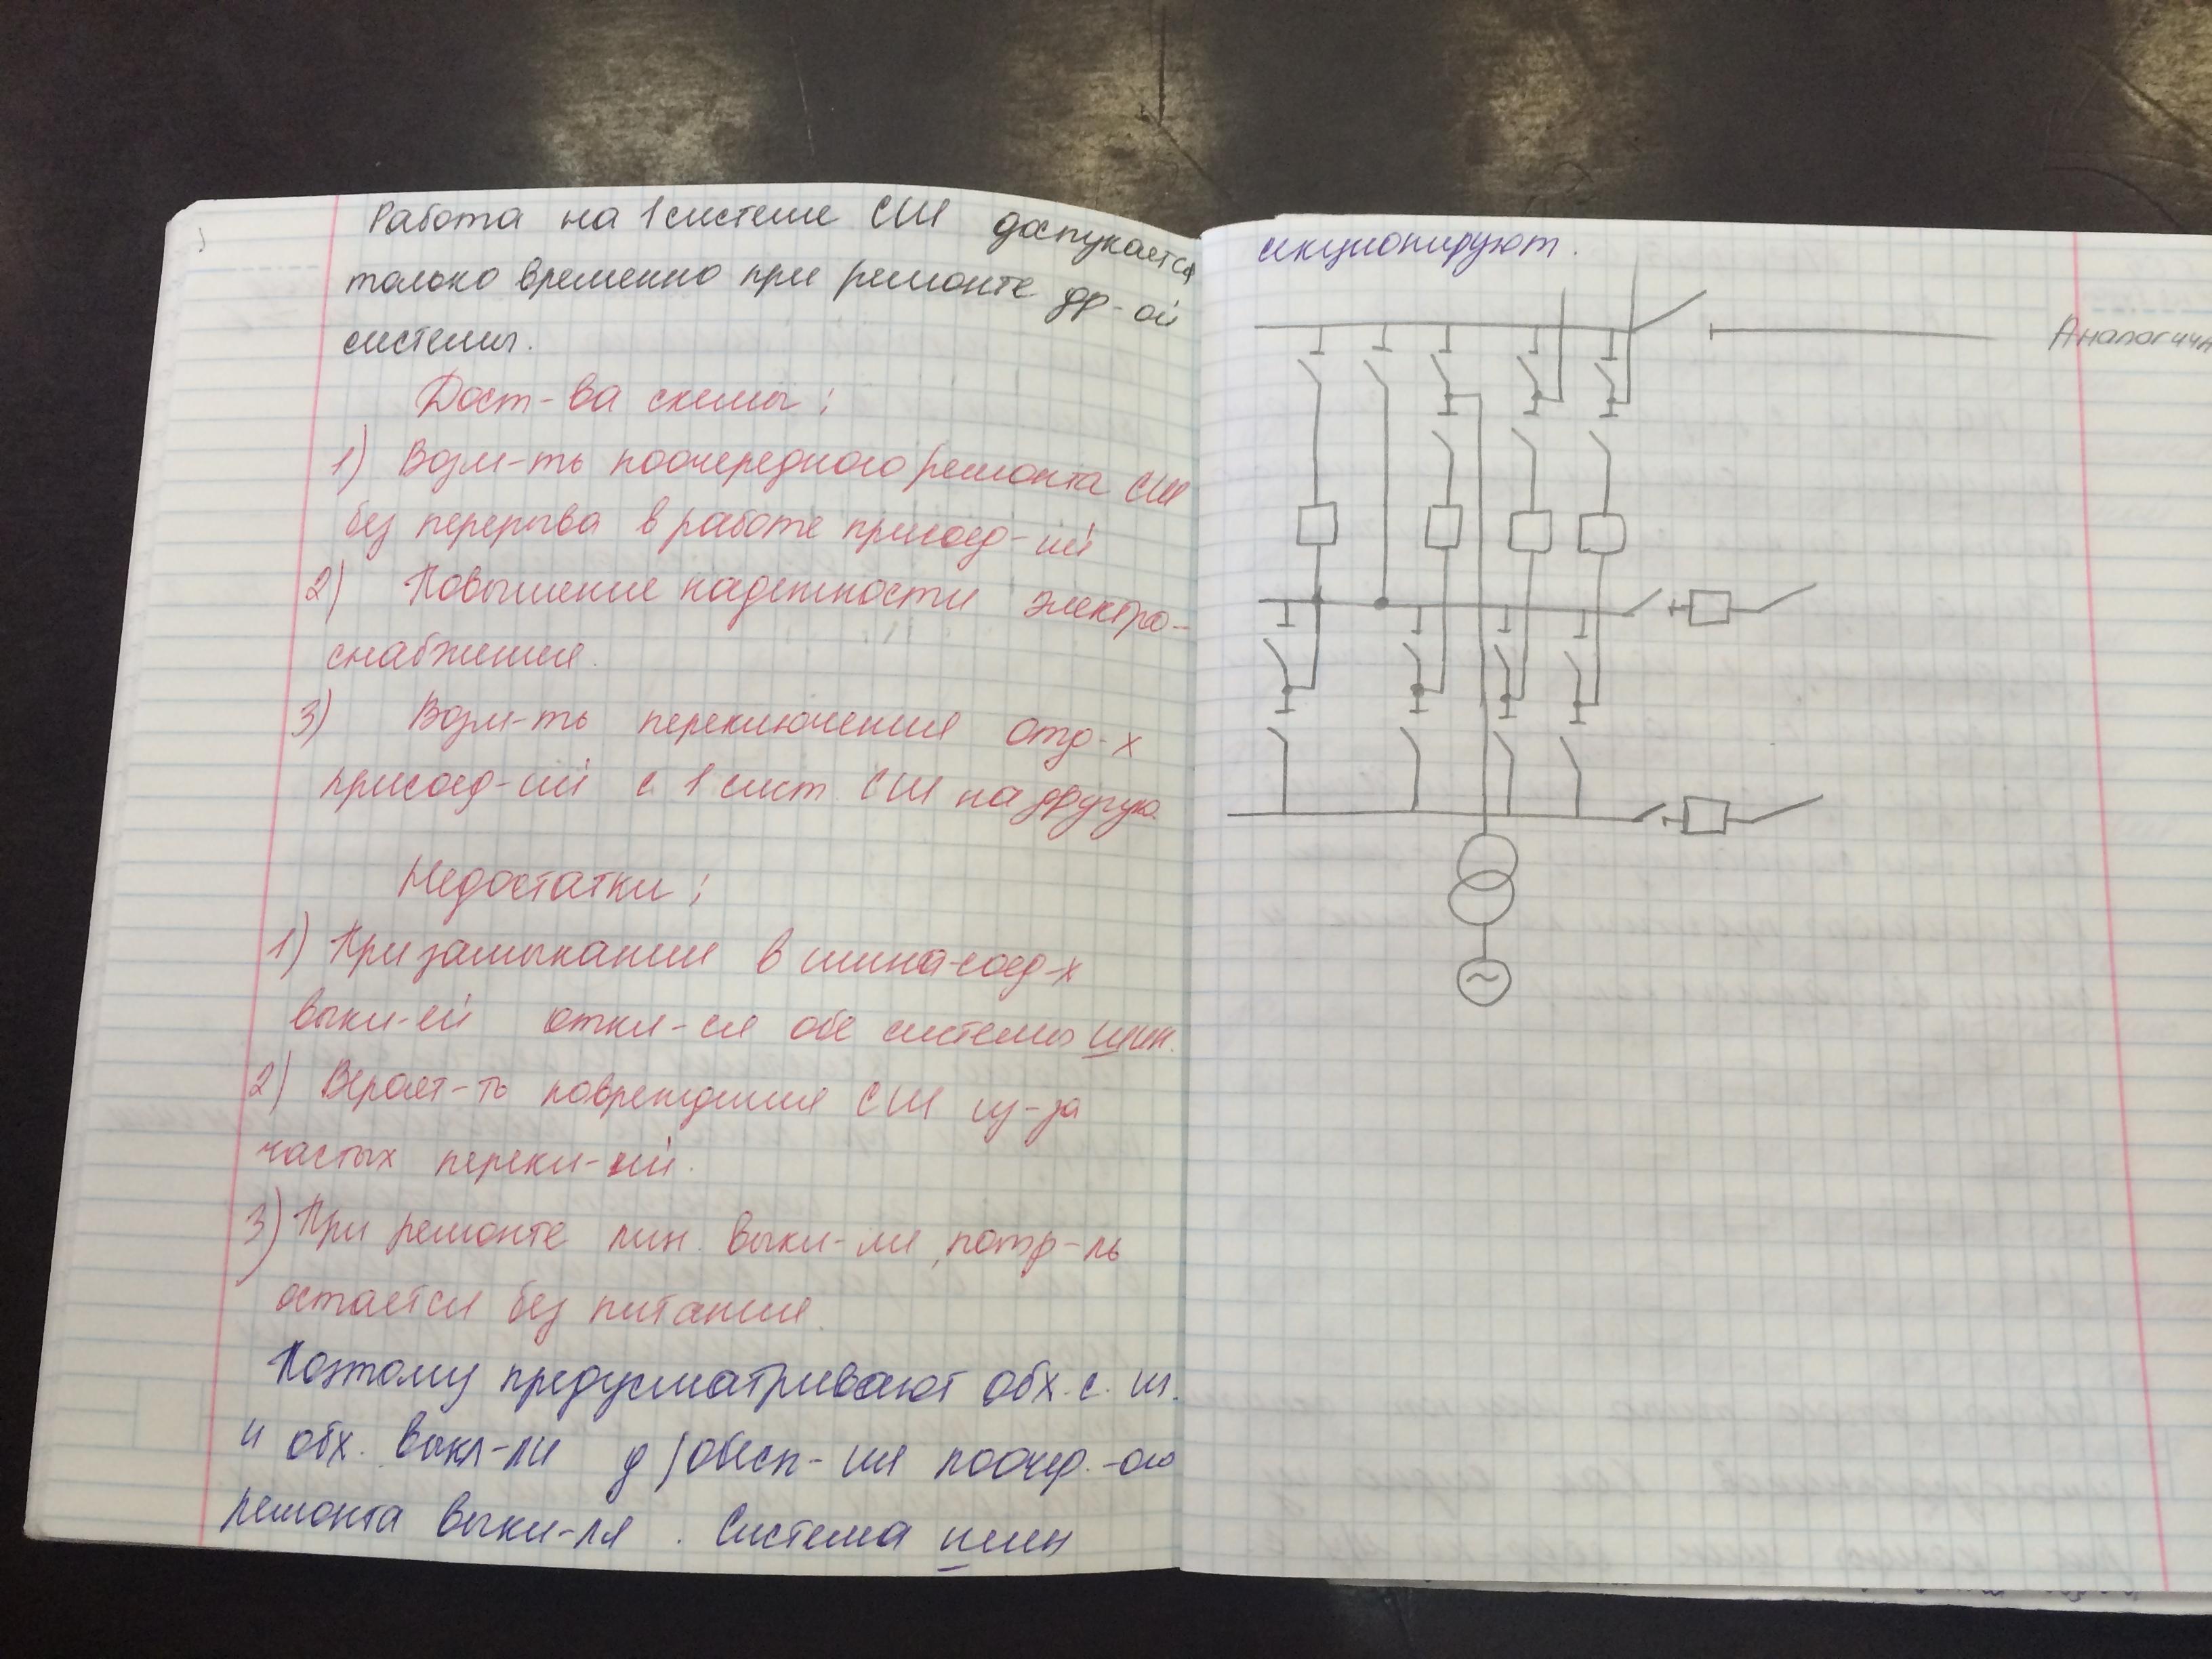 Работа на 1 системе СШ допускается
только временно при ремонте др-ой
системы.
Дост-ва схемы:
1) Возм-ть поочередного ремонта СШ
без перерыва в работе присоед-ий
2) Повышение надежности электро-
снабжения.
3) Возм-ть переключения отд-х
присоед-ий с 1 сист. СШ на другую.
Недостатки:
1) При замыкании в шина-соед-х
выкл-ей откл-ся обе системы шин.
2) Вероят-ть повреждения СШ из-за
частых перекл-ий.
3) При ремонте лин. выкл-ли, потр-ль
остается без питания.
Поэтому предусматривают обх. с. ш.
и обх. выкл-ли д/обесп-ия поочер.-ого
ремонта выкл-ля. Система шин
секционируют.
Аналогичн